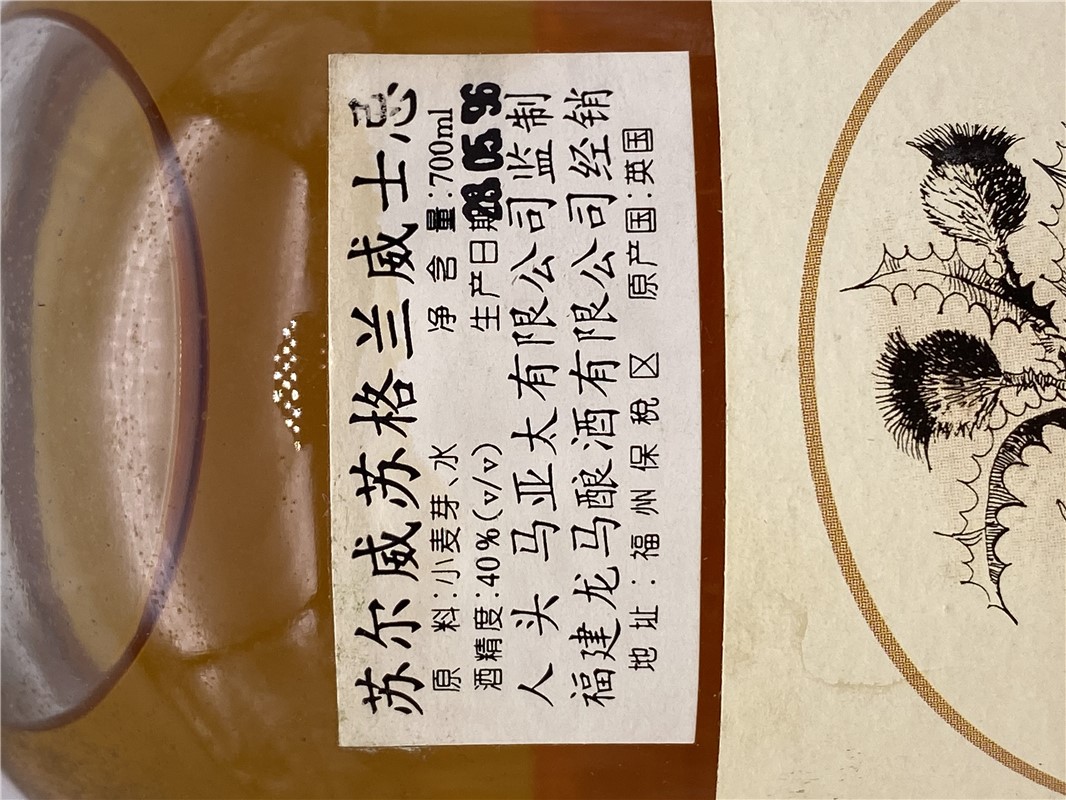 苏尔威苏格兰威士忌
原 料:小麦芽、水 净 含 量:700ml
酒精度:40%(v/v) 生产日期 28 05 96
人头马亚太有限公司监制
福建龙马酿酒有限公司经销
地址:福州保税区 原产国:英国